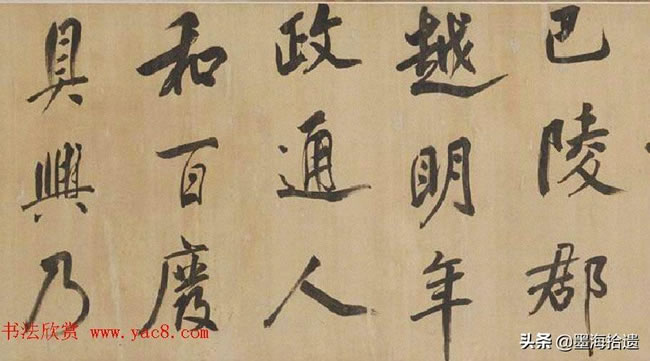 巴陵郡
越明年
政通人
和百廢
具興乃
书法欣赏 www.yac8.com
头条 @墨海拾遗